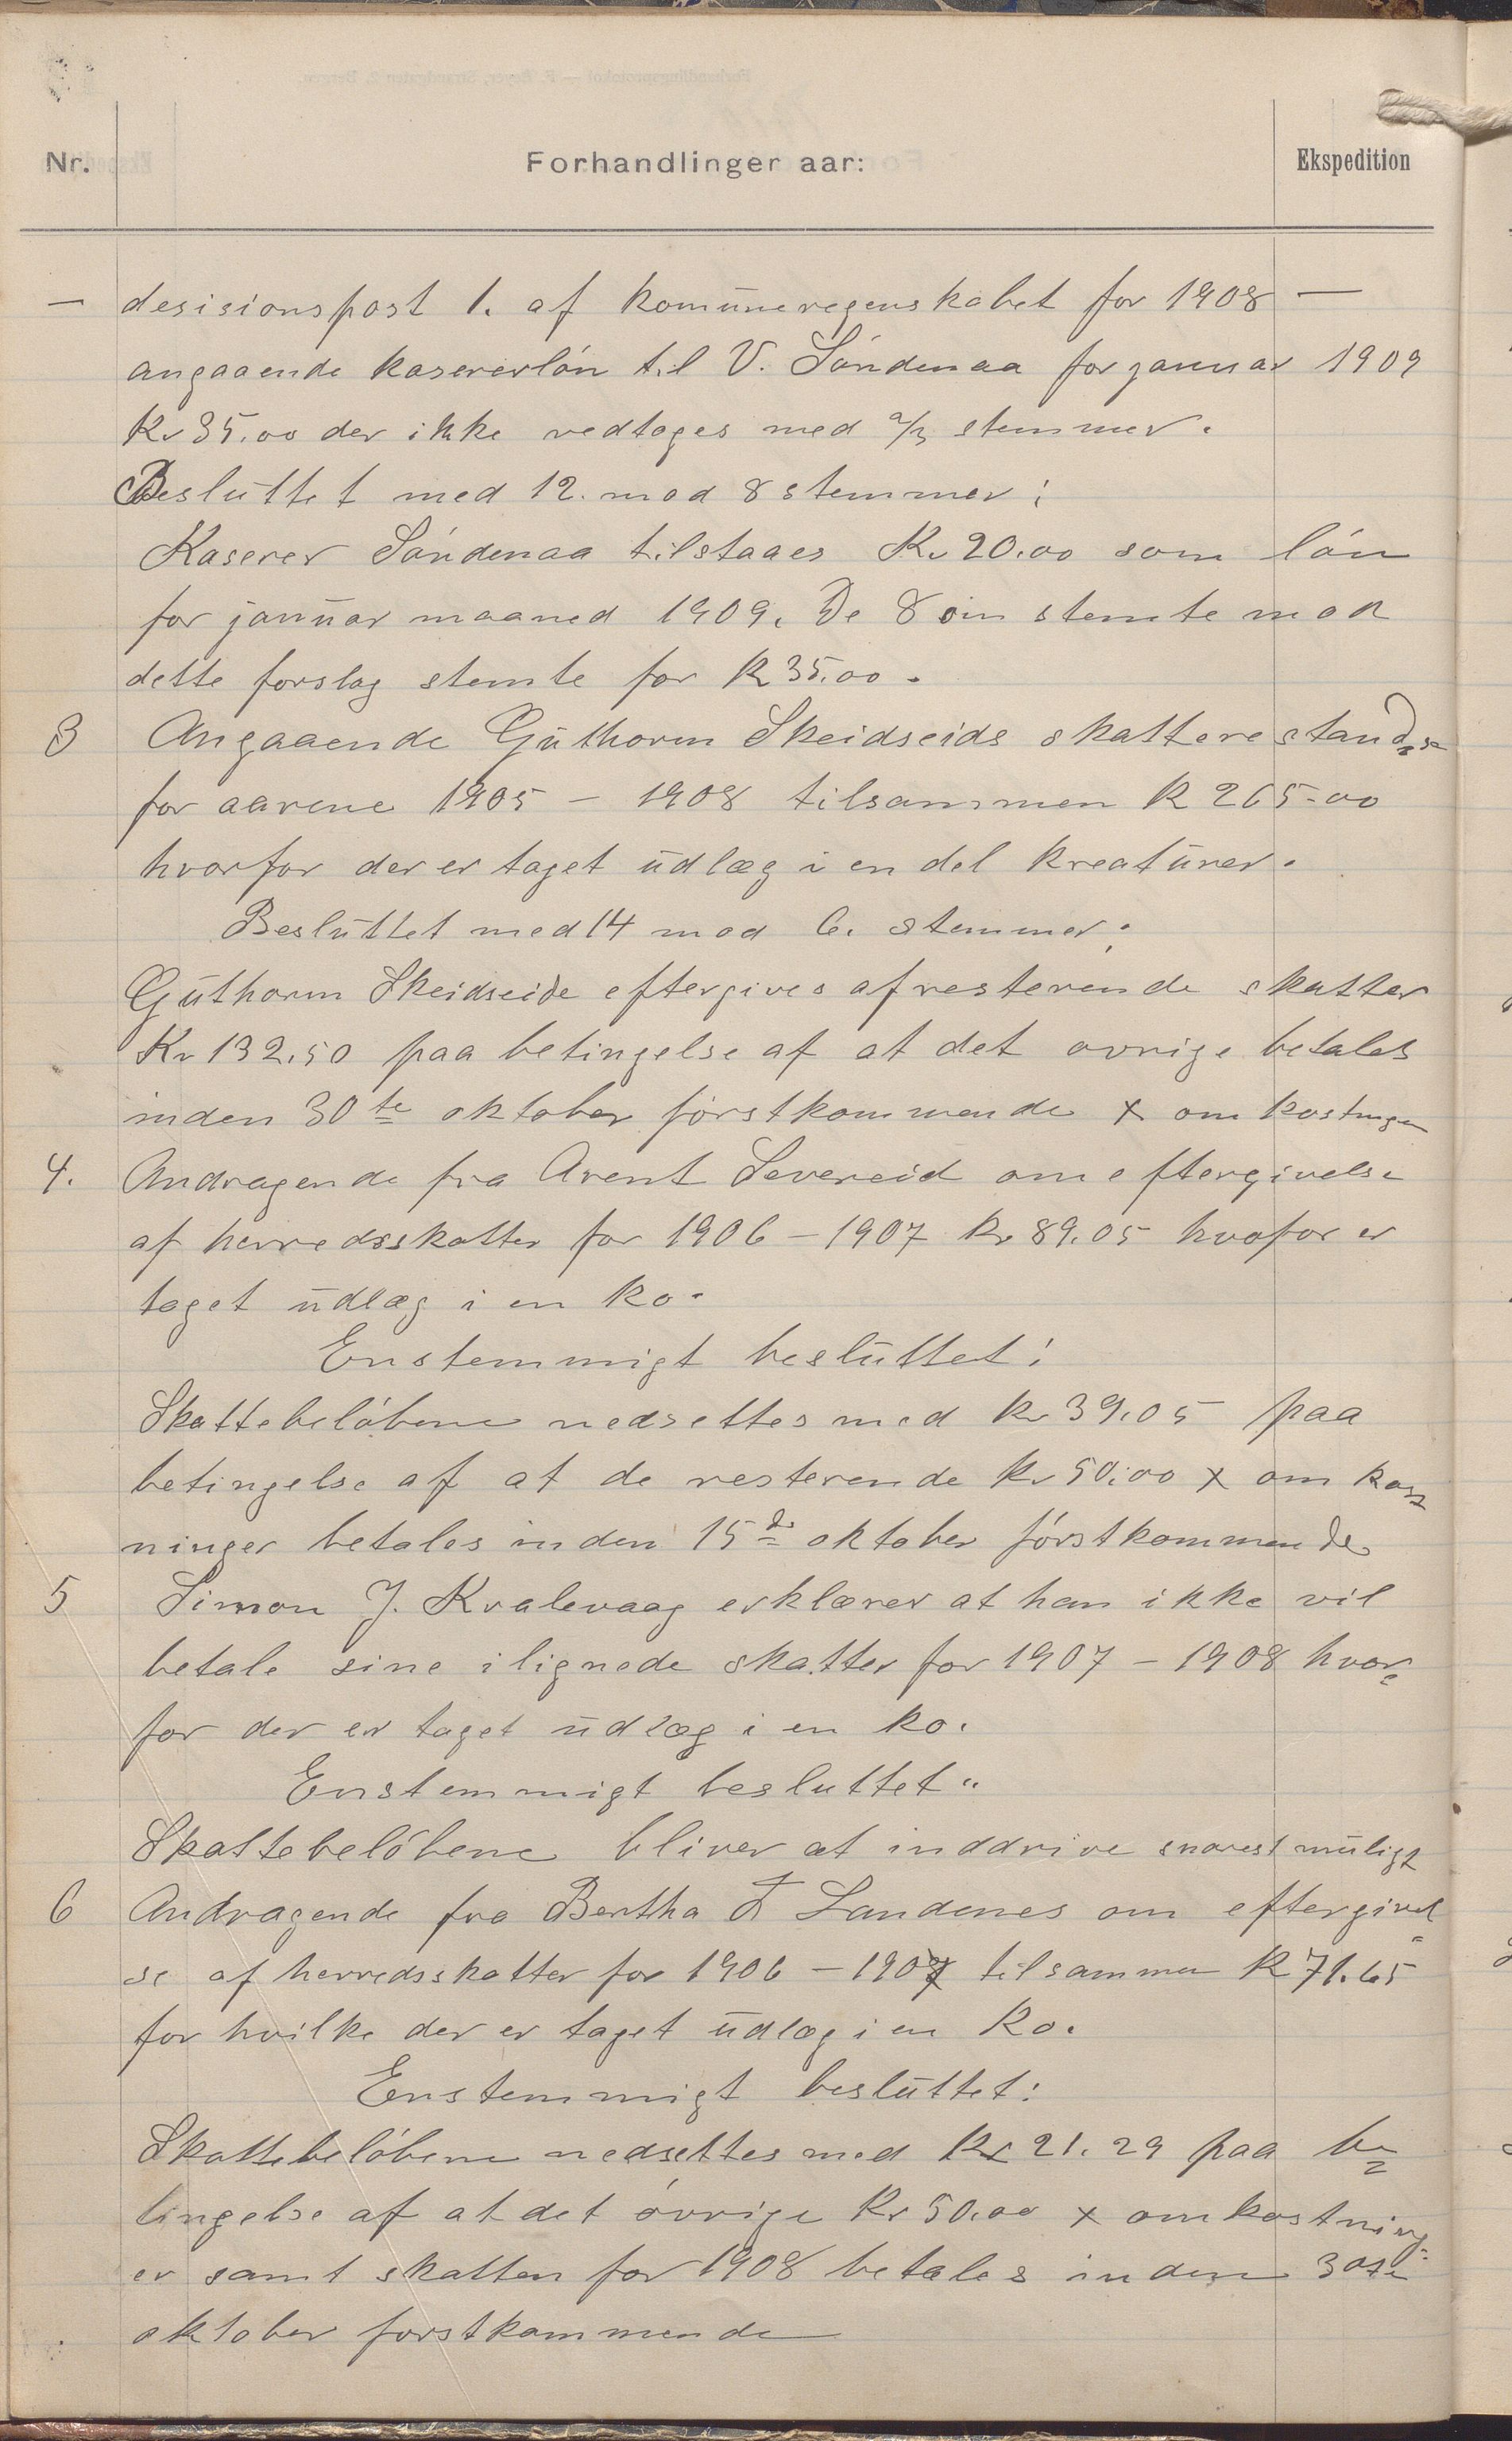 Nr. Forhandlinger aar: Ekspedition
— desisionspost 1. af komuneregenskabet for 1908 —
angaaende kasererløn til V. Søndenaa for januar 1909
Kr 35.00 der ikke vedtages med 2/3 stemmer.
Besluttet med 12. mod 8 stemmer:
Kaserer Søndenaa tilstaaes Kr 20.00 som løn
for januar maaned 1909. De 8 som stemte mod
dette forslag stemte for K 35.00.
3 Angaaende Guthorm Skeidseids skatterestandse
for aarene 1905 - 1908 tilsammen K 265-00
hvorfor der er taget udlæg i en del kreaturer.
Besluttet med 14 mod 6. stemmer:
Guthorm Skeidseide eftergives af resterende skatter
Kr 132.50 paa betingelse af at det øvrige betales
inden 30te oktober førstkommende + omkostninger
4. Andragende fra Arent Severeid om eftergivelse
af herredsskatter for 1906 - 1907 Kr 89.05 hvofor er
taget udlæg i en ko.
Enstemmigt besluttet:
Skattebeløbene nedsettes med Kr 39.05 paa
betingelse af at de resterende Kr 50.00 + omkost
ninger betales inden 15de oktober førstkommende
5 Simon J. Kvalevaag erklærer at han ikke vil
betale sine ilignede skatter for 1907 - 1908 hvor=
for der er taget udlæg i en ko.
Enstemmigt besluttet:
Skattebeløbene bliver at inddrive snarest muligt
6 Andragende fra Bertha T Sandenes om eftergivel=
se af herredsskatter for 1906 - 1907 tilsammen K 71.65
for hvilke der er taget udlæg i en Ko.
Enstemmigt besluttet:
Skattebeløbene nedsettes med Kr 21.29 paa be=
tingelse af at det øvrige Kr 50.00 + omkostning=
er samt skatten for 1908 betales inden 30te
oktober førstkommende